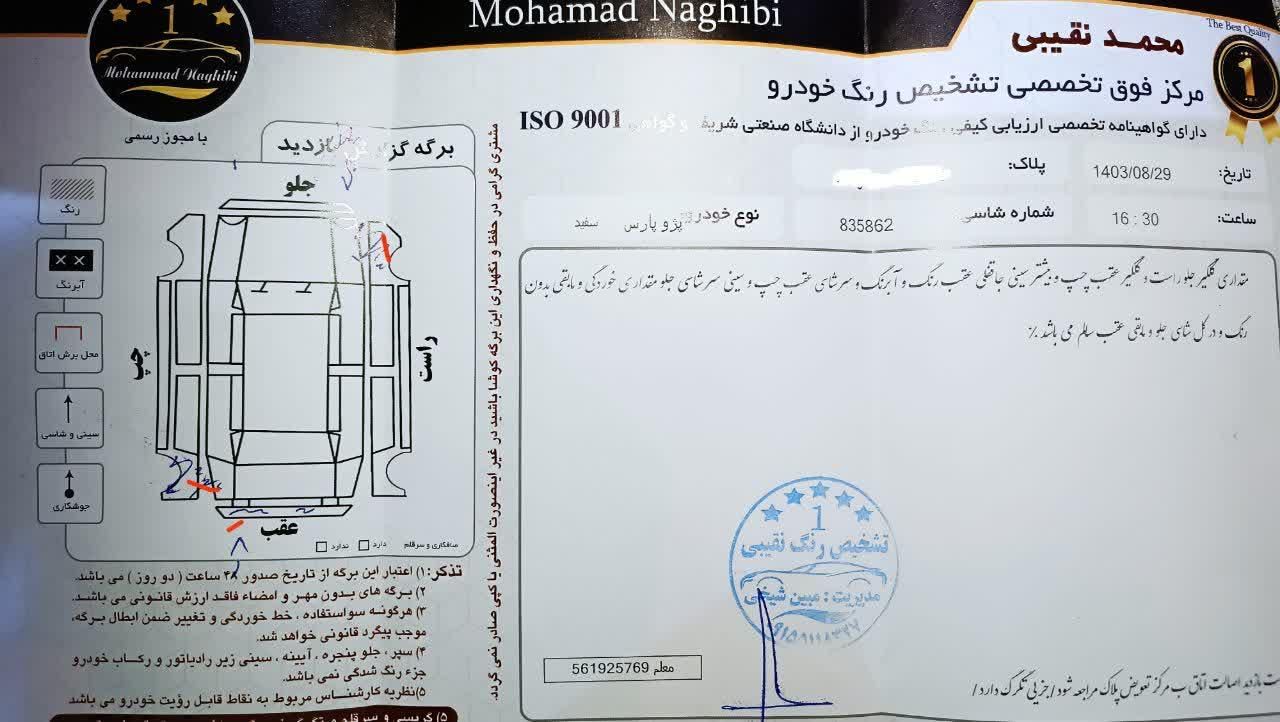 Mohamad Naghibi
The Best Quality
1
محمد نقیبی
مرکز فوق تخصصی تشخیص رنگ خودرو
دارای گواهینامه تخصصی ارزیابی کیفی رنگ خودرو از دانشگاه صنعتی شریف و گواهی ISO 9001
تاریخ: 1403/08/29
پلاک:
ساعت: 16 : 30
شماره شاسی 835862
نوع خودرو: پژو پارس سفید
مقداری گلگیر جلو راست و گلگیر عقب چپ و بیشتر سینی جافنلی عقب رنگ و آبرنگ و سرشاسی عقب چپ و سینی سرشاسی جلو مقداری خوردگی و مابقی بدون
رنگ و در کل شاسی جلو و مابقی عقب سالم می باشد ./
1
تشخیص رنگ نقیبی
مدیریت : مبین شیخی
معلم 561925769
بازدید اصالت اتاق ب مرکز تعویض پلاک مراجعه شود / جزیی تگرگ دارد /
1
Mohammad Naghibi
با مجوز رسمی
برگه گزارش بازدید
رنگ
X X
آبرنگ
محل برش اتاق
سینی و شاسی
جوشکاری
جلو
چپ
راست
عقب
صافکاری و سرقلم دارد ندارد
مشتری گرامی در حفظ و نگهداری این برگه کوشا باشید در غیر اینصورت المثنی یا کپی صادر نمی گردد.
تذکر: ۱) اعتبار این برگه از تاریخ صدور ۴۸ ساعت ( دو روز ) می باشد.
۲) برگه های بدون مهر و امضاء فاقد ارزش قانونی می باشد.
۳) هرگونه سواستفاده ، خط خوردگی و تغییر ضمن ابطال برگه،
موجب پیگرد قانونی خواهد شد.
۴) سپر ، جلو پنجره ، آیینه ، سینی زیر رادیاتور و رکاب خودرو
جزء رنگ شدگی نمی باشد.
۵)نظریه کارشناس مربوط به نقاط قابل رؤیت خودرو می باشد